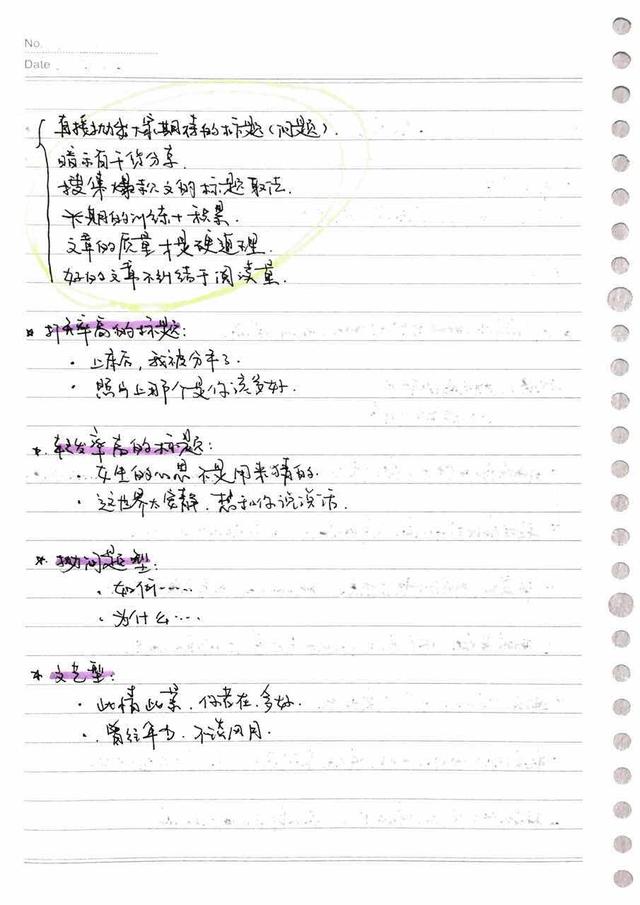 No.
Date
直接抛出大家期待的标题(问题).
暗示有干货分享
搜集爆款文的标题取法.
长期的训练+积累.
文章的质量才是硬道理.
好的文章不纠结于阅读量.
* 打开率高的标题:
· 上床后,我被分手了.
· 照片上那个是你该多好.
* 转发率高的标题:
· 女生的心思不是用来猜的.
· 这世界太安静.想和你说说话.
* 抛问题型:
· 如何……
· 为什么……
* 文艺型:
· 此情此景.你若在.多好.
· 曾经年少.不谈风月.